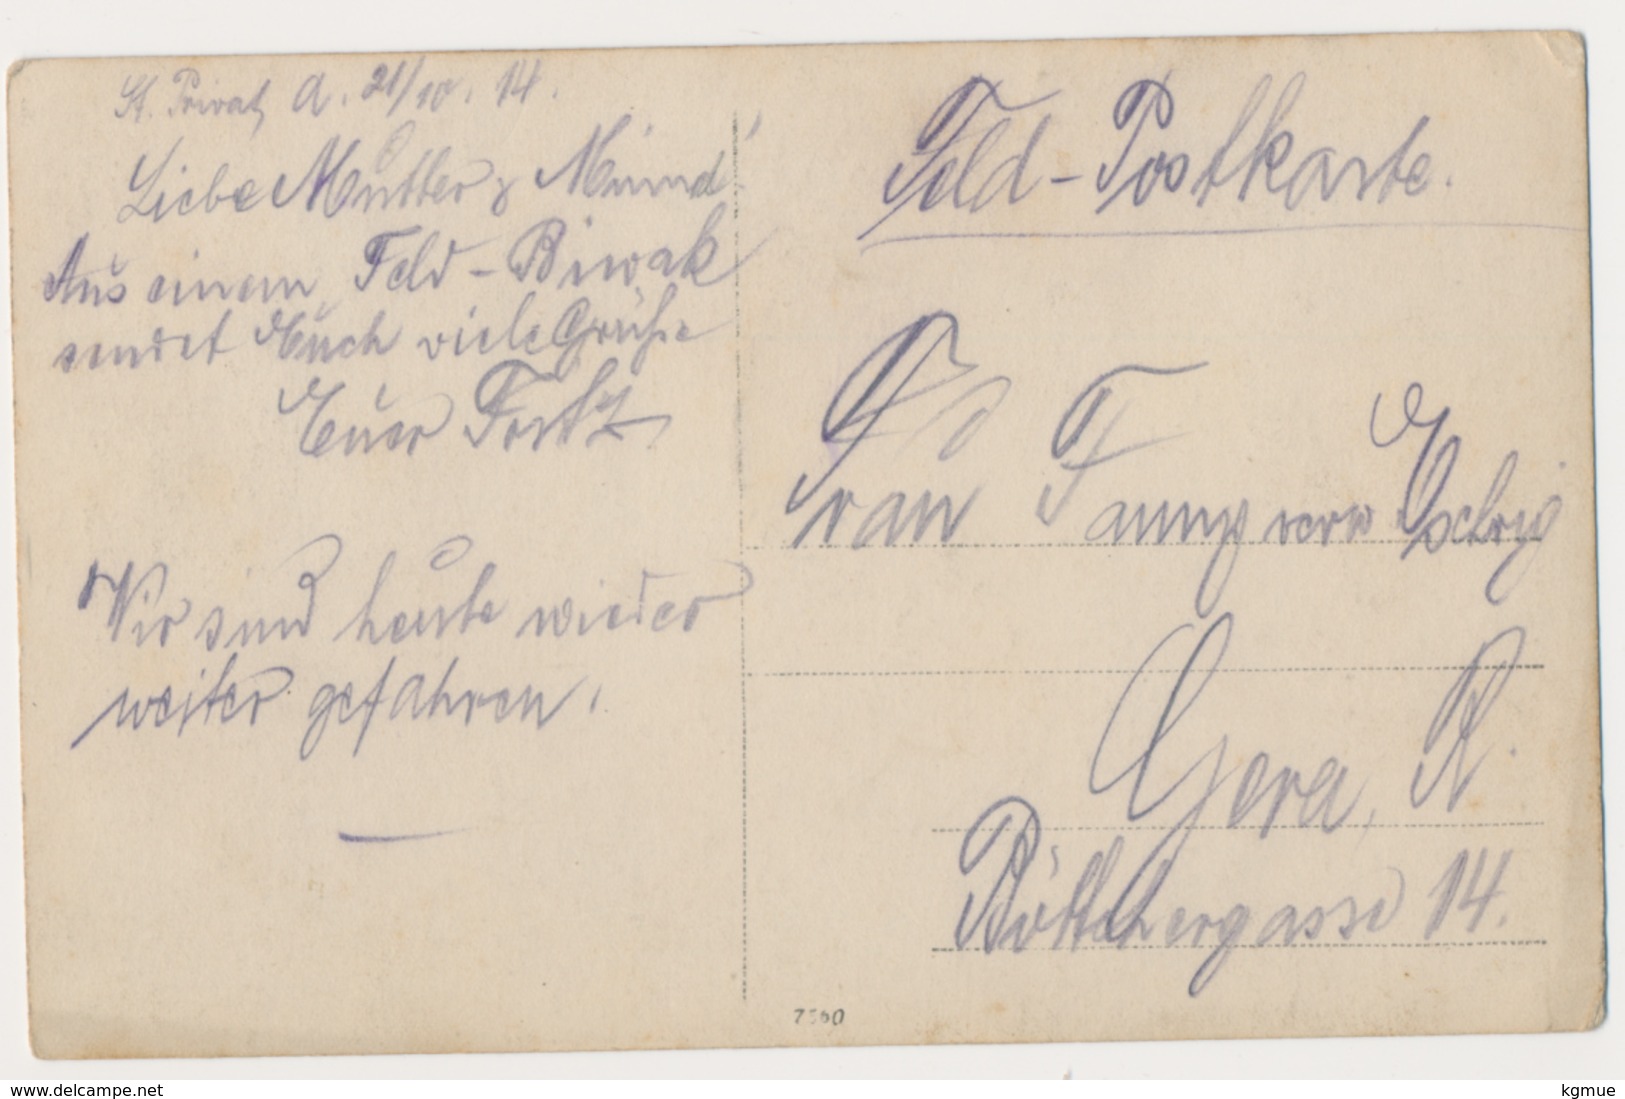 St. Privat, d. 21/10. 14.
Liebe Mutter &
Aus einem Feld-Biwak
sendet Euch viele Grüße
Euer Fritz
Wir sind heute wieder
weiter gefahren.
Feld-Postkarte.
Frau Fanny verw
Gera, R.
Böttchergasse 14.
7560
www.delcampe.net
kgmue